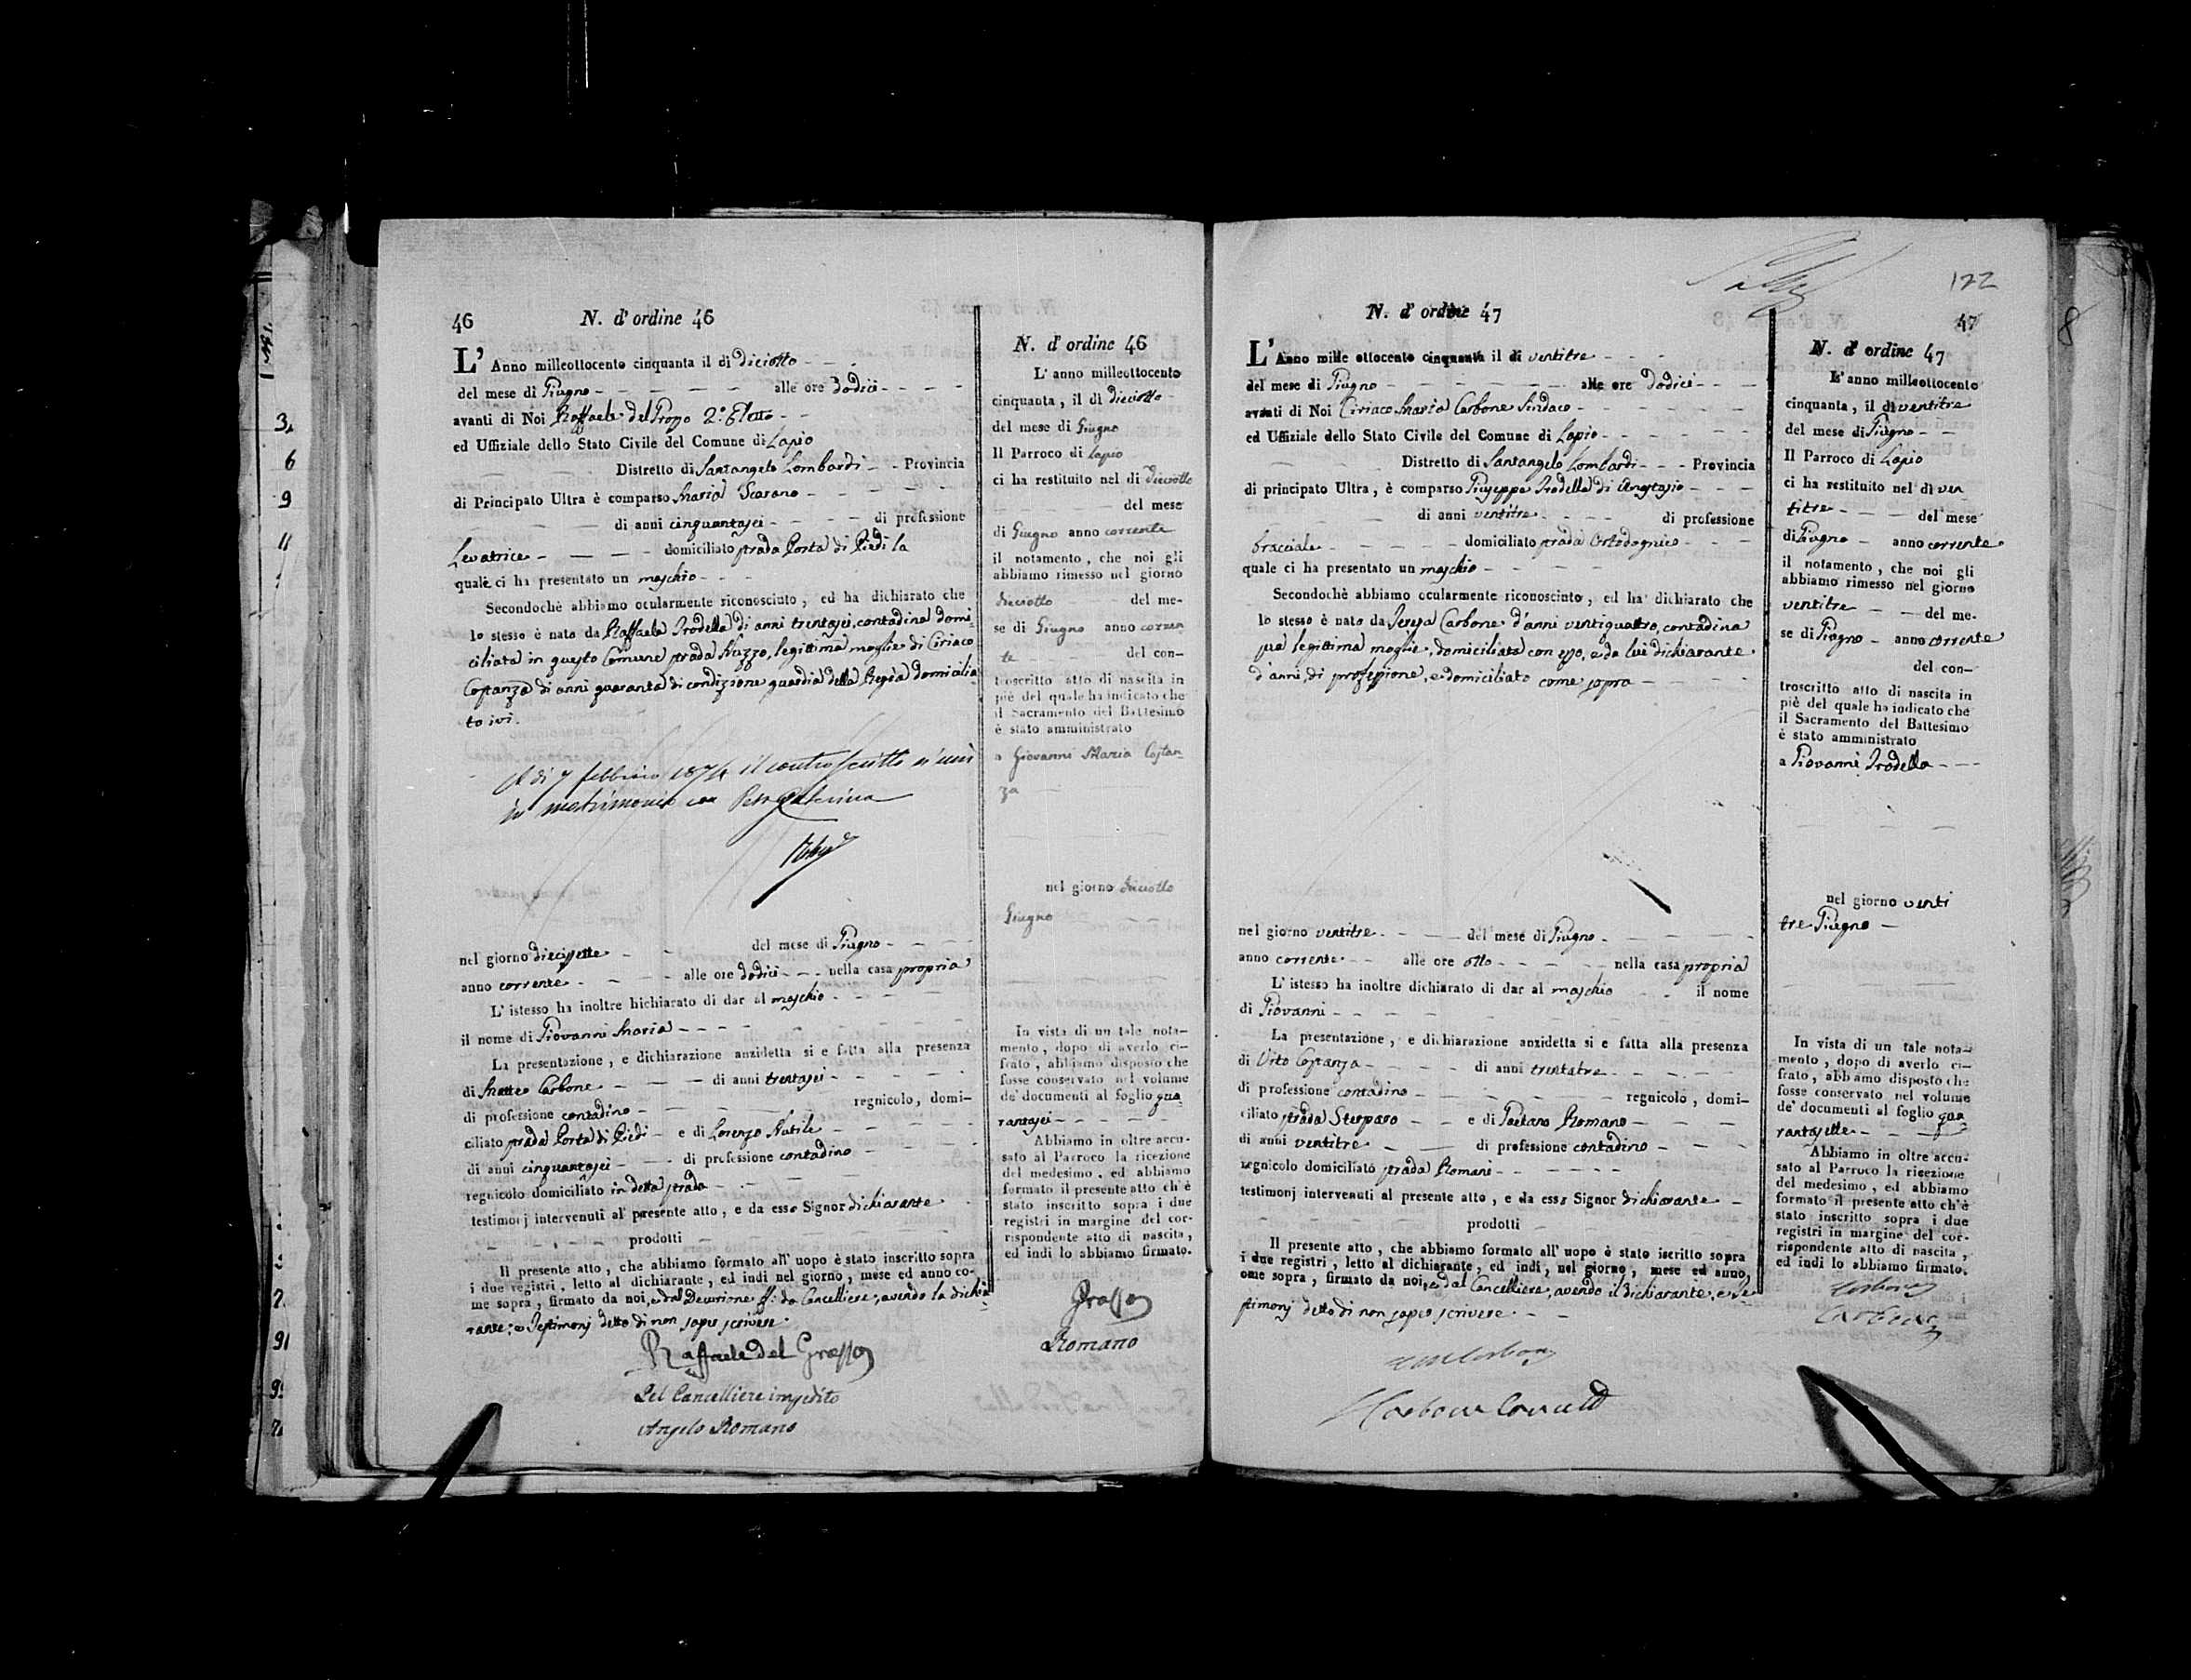 46 N. d' ordine 46
L' Anno milleottocento cinquanta il di diciotto
del mese di Giugno alle ore dodici
avanti di Noi Raffaele del Grosso 2.° Eletto
ed Uffiziale dello Stato Civile del Comune di Lapio
Distretto di Santangelo Lombardi Provincia
di Principato Ultra è comparso Maria Scarano
di anni cinquantasei di professione
Levatrice domiciliato strada Porta di Piedi la
quale ci ha presentato un maschio
Secondochè abbiamo ocularmente riconosciuto, ed ha dichiarato che
lo stesso è nato da Raffaela Trodella di anni trentasei, contadina domi-
ciliata in questo Comune strada Nuzzo, legittima moglie di Ciriaco
Costanza di anni quaranta di condizione guardia della Regia domicilia-
to ivi.
A di 7 febbraio 1874 il controscritto s'unì
in matrimonio con Caterina
nel giorno diecissette del mese di Giugno
anno corrente alle ore dodici nella casa propria
L' istesso ha inoltre hichiarato di dar al maschio
il nome di Giovanni Maria
La presentazione, e dichiarazione anzidetta si e fatta alla presenza
di Matteo Carbone di anni trentasei
di professione contadino regnicolo, domi-
ciliato strada Porta di Piedi e di Lorenzo Nutile
di anni cinquantasei di professione contadino
regnicolo domiciliato in detta strada
testimonj intervenuti al presente atto, e da esso Signor dichiarante
prodotti
Il presente atto, che abbiamo formato all' uopo è stato inscritto sopra
i due registri, letto al dichiarante, ed indi nel giorno, mese ed anno co-
me sopra, firmato da noi, e dal Decurione ff: da Cancelliere, avendo la dichia-
rante, e Testimonj detto di non saper scrivere.
Raffaele del Grosso
Pel Cancelliere impedito
Angelo Romano
N. d' ordine 46
L' anno milleottocento
cinquanta, il dì dieciotto
del mese di Giugno
Il Parroco di Lapio
ci ha restituito nel di dieciotto
del mese
di Giugno anno corrente
il notamento, che noi gli
abbiamo rimesso nel giorno
dieciotto del me-
se di Giugno anno corren
te del con-
troscritto atto di nascita in
piè del quale ha indicato che
il Sacramento del Battesimo
è stato amministrato
a Giovanni Maria Costan-
za
nel giorno dieciotto
Giugno
In vista di un tale nota-
mento, dopo di averlo ci-
frato, abbiamo disposto che
fosse conservato nel volume
de' documenti al foglio qua
rantasei
Abbiamo in oltre accu-
sato al Parroco la ricezione
del medesimo, ed abbiamo
formato il presente atto ch'è
stato inscritto sopra i due
registri in margine del cor-
rispondente atto di nascita,
ed indi lo abbiamo firmato.
Grosso
Romano
122
N. d' ordine 47
47
L' Anno mille ottocento cinquanta il di ventitre
del mese di Giugno alle ore dodici
avanti di Noi Ciriaco Maria Carbone Sindaco
ed Uffiziale dello Stato Civile del Comune di Lapio
Distretto di Santangelo Lombardi Provincia
di principato Ultra, è comparso Giuseppe Trodella di Anastasio
di anni ventitre di professione
bracciale domiciliato strada Ortodognico
quale ci ha presentato un maschio
Secondochè abbiamo ocularmente riconosciuto, ed ha dichiarato che
lo stesso è nato da Teresa Carbone d'anni ventiquattro, contadina
sua legittima moglie, domiciliata con esso, e da lui dichiarante
d'anni, di professione, e domiciliato come sopra
nel giorno ventitre del mese di Giugno
anno corrente alle ore otto nella casa propria
L' istesso ha inoltre dichiarato di dar al maschio il nome
di Giovanni
La presentazione, e dichiarazione anzidetta si e fatta alla presenza
di Vito Costanza di anni trentatre
di professione contadino regnicolo, domi-
ciliato strada Sterparo e di Gaetano Romano
di anni ventitre di professione contadino
regnicolo domiciliato strada Romani
testimonj intervenuti al presente atto, e da esso Signor dichiarante
prodotti
Il presente atto, che abbiamo formato all' uopo è stato iscritto sopra
i due registri, letto al dichiarante, ed indi, nel giorno, mese ed anno,
ome sopra, firmato da noi, e dal Cancelliere, avendo il dichiarante, e Te-
stimonj detto di non saper scrivere
N. d' ordine 47
L' anno milleottocento
cinquanta, il di ventitre
del mese di Giugno
Il Parroco di Lapio
ci ha restituito nel di ven
titre del mese
di Giugno anno corrente
il notamento, che noi gli
abbiamo rimesso nel giorno
ventitre del me-
se di Giugno anno corrente
del con-
troscritto atto di nascita in
piè del quale ha indicato che
il Sacramento del Battesimo
è stato amministrato
a Giovanni Trodella
nel giorno venti
tre Giugno
In vista di un tale nota-
mento, dopo di averlo ci-
frato, abbiamo disposto che
fosse conservato nel volume
de' documenti al foglio qua
rantasette
Abbiamo in oltre accu-
sato al Parroco la ricezione
del medesimo, ed abbiamo
formato il presente atto ch'è
stato inscritto sopra i due
registri in margine del cor-
rispondente atto di nascita,
ed indi lo abbiamo firmato.